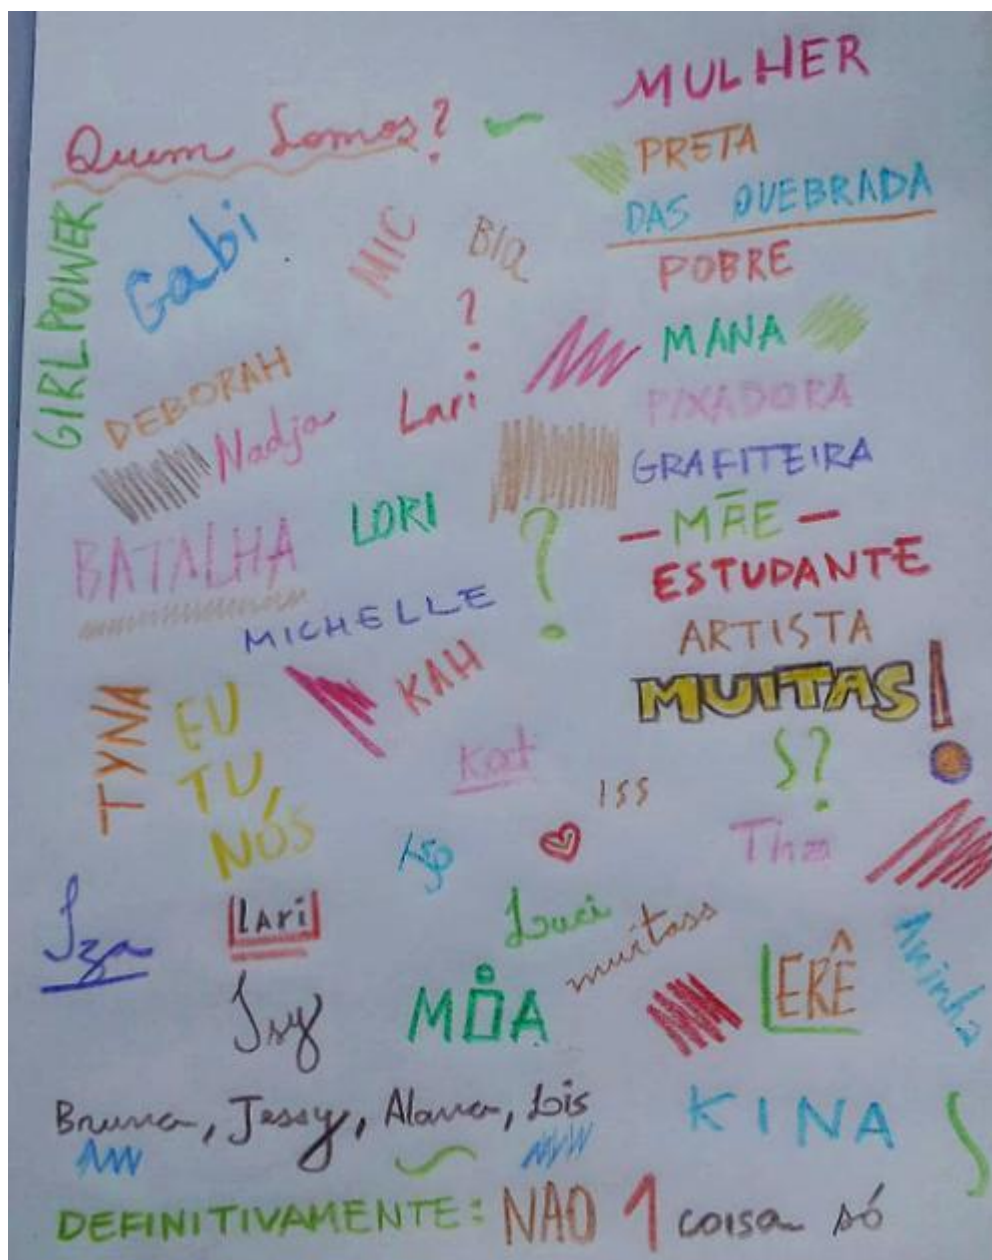 Quem Somos?
MULHER
PRETA
DAS QUEBRADA
POBRE
MANA
PIXADORA
GRAFITEIRA
- MÃE -
ESTUDANTE
ARTISTA
MUITAS!
S?
GIRL POWER
Gabi
MIC
BIA
?
Lari
DEBORAH
Nadja
LORI
?
BATALHA
MICHELLE
KAH
TYNA
EU
TU,
NÓS
Kat
ISS
Tha
Iza
LARi
Luci
muitass
Isy
MOA
LERÊ
Aninha
Bruna, Jessy, Alana, Lois
KINA
DEFINITIVAMENTE: NAO 1 coisa só